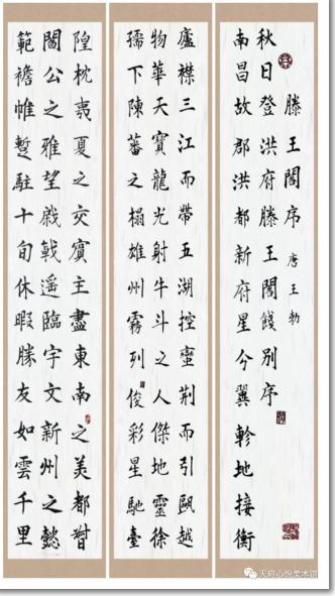 滕王閣序 唐王勃
秋日登洪府滕王閣餞別序
南昌故郡洪都新府星分翼軫地接衡
廬襟三江而帶五湖控蠻荊而引甌越
物華天寶龍光射牛斗之人傑地靈徐
孺下陳蕃之榻雄州霧列俊彩星馳臺
隍枕夷夏之交賓主盡東南之美都督
閻公之雅望棨戟遥臨宇文新州之懿
範襜帷暫駐十旬休暇勝友如雲千里